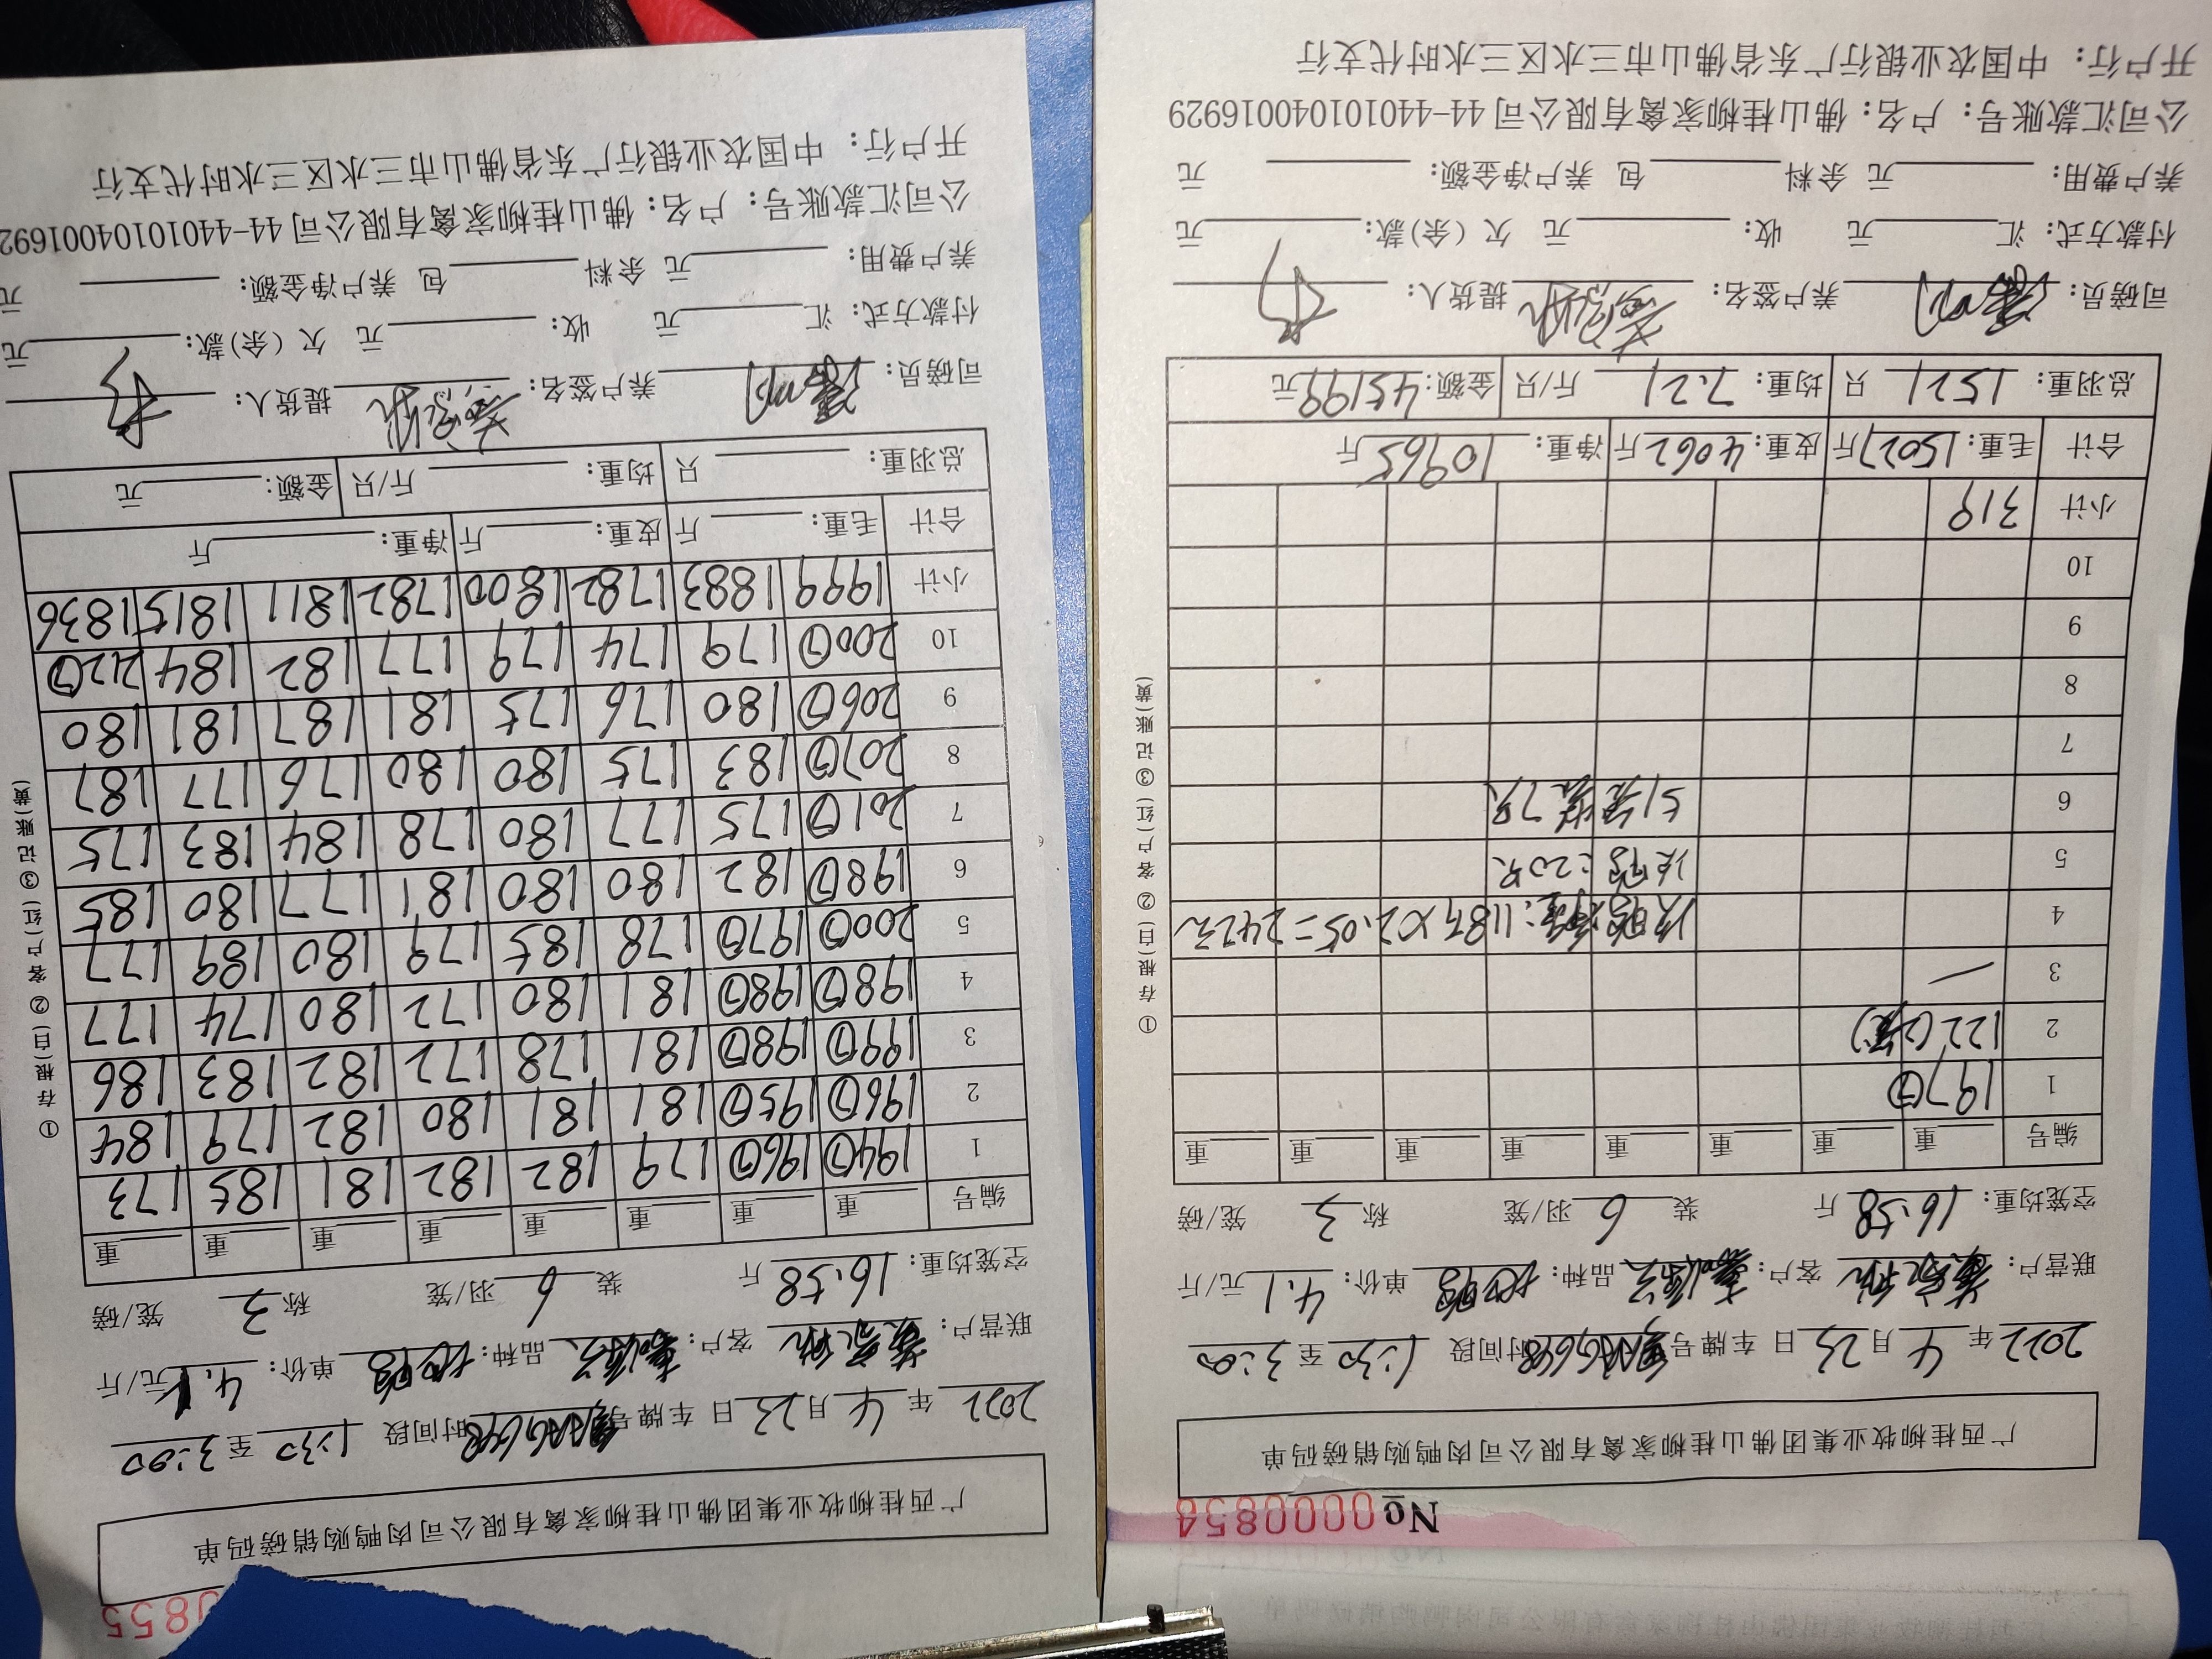 No 0000854
广西桂柳牧业集团佛山桂柳家禽有限公司肉鸭购销磅码单
2022年 4月 23日 车牌号 时间段 1:30 至 3:00
联营户: 客户: 品种: 单价: 4.1 元/斤
空笼均重: 16.58 斤 装 6 羽/笼 称 3 笼/磅
编号 重 重 重 重 重 重 重 重
1 197⑦
2 122(2笼)
3
4 次鸭净重:118斤×2.05=242元
5 次鸭:20只
6 只
7
8
9
10
小计 319
合计 毛重: 15027 斤 皮重: 4062 斤 净重: 10965 斤
总羽重: 1521 只 均重: 7.21 斤/只 金额: 45199 元
司磅员: 养户签名: 提货人:
付款方式: 汇 元 收: 元 欠(余)款: 元
养户费用: 元 余料 包 养户净金额: 元
公司汇款账号: 户名: 佛山桂柳家禽有限公司 44-440101040016929
开户行: 中国农业银行广东省佛山市三水区三水时代支行
①存根(白)②客户(红)③记账(黄)
0855
广西桂柳牧业集团佛山桂柳家禽有限公司肉鸭购销磅码单
2022年 4月 23日 车牌号 时间段 1:30 至 3:00
联营户: 客户: 品种: 单价: 4.1 元/斤
空笼均重: 16.58 斤 装 6 羽/笼 称 3 笼/磅
编号 重 重 重 重 重 重 重 重
1 194⑦ 196⑦ 179 182 182 181 185 173
2 196⑦ 195⑦ 181 181 180 182 179 184
3 199⑦ 198⑦ 181 178 172 182 183 186
4 198⑦ 198⑦ 181 180 172 180 174 177
5 200⑦ 197⑦ 178 185 179 180 189 177
6 198⑦ 182 180 180 181 177 180 185
7 201⑦ 175 177 180 178 184 183 175
8 207⑦ 183 175 180 180 176 177 187
9 206⑦ 180 176 175 181 187 181 180
10 200⑦ 179 174 179 177 182 184 212⑦
小计 1999 1883 1782 1800 1782 1811 1815 1836
合计 毛重: 斤 皮重: 斤 净重: 斤
总羽重: 只 均重: 斤/只 金额: 元
司磅员: 养户签名: 提货人:
付款方式: 汇 元 收: 元 欠(余)款: 元
养户费用: 元 余料 包 养户净金额: 元
公司汇款账号: 户名: 佛山桂柳家禽有限公司 44-44010104001692
开户行: 中国农业银行广东省佛山市三水区三水时代支行
①存根(白)②客户(红)③记账(黄)